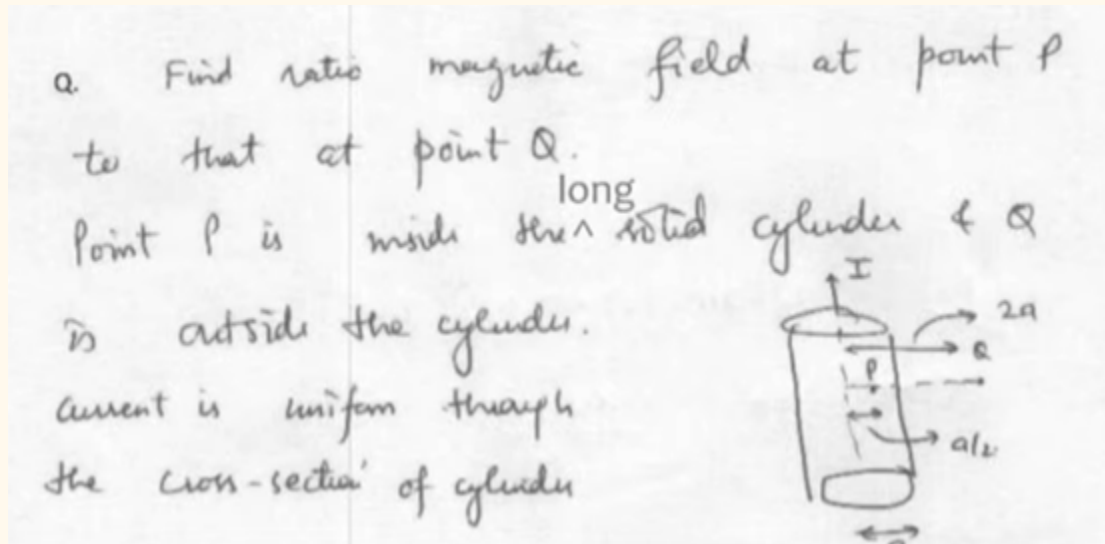 Q. Find ratio magnetic field at point P
to that at point Q.
long
Point P is inside the ^ solid cylinder & Q
is outside the cylinder.
Current is uniform through
the cross-section of cylinder
I
2a
Q
P
a/2